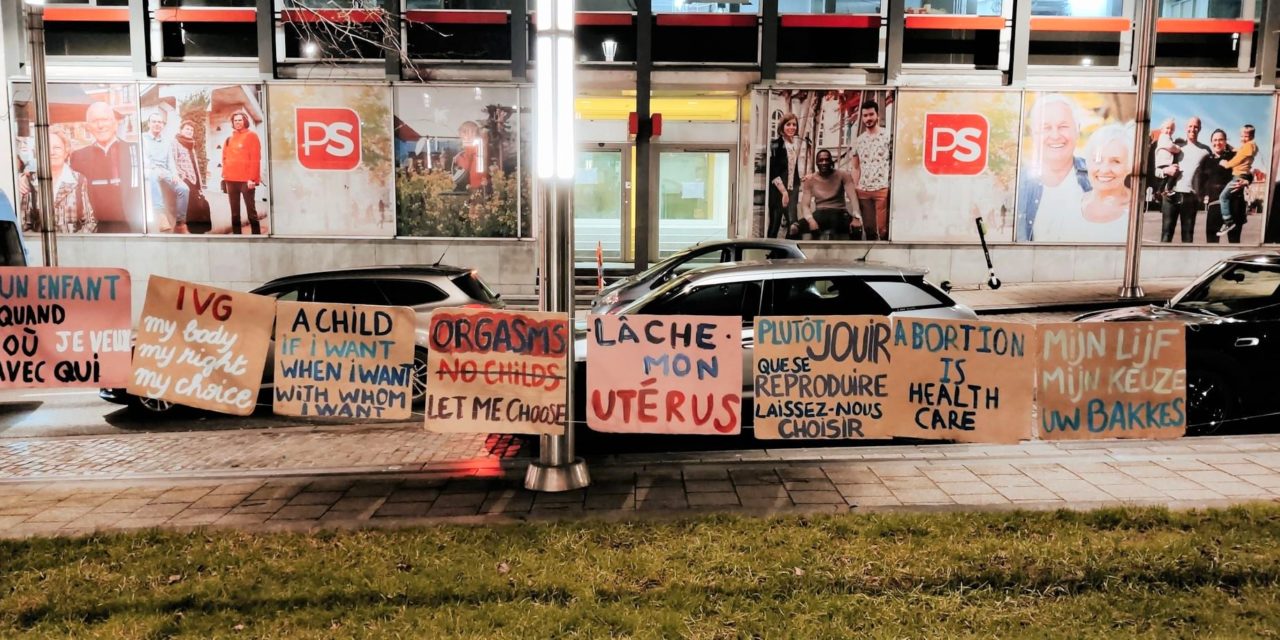 PS
PS
UN ENFANT
QUAND
OÙ JE VEUX
AVEC QUI
IVG
my body
my right
my choice
A CHILD
IF i WANT
WHEN i WANT
WiTH WHOM
I WANT
ORGASMS
NO CHILDS
LET ME CHOOSE
LÂCHE
MON
UTÉRUS
PLUTÔT JOUIR
QUE SE
REPRODUIRE
LAISSEZ-NOUS
CHOISIR
ABORTION
IS
HEALTH
CARE
MIJN LIJF
MIJN KEUZE
UW BAKKES